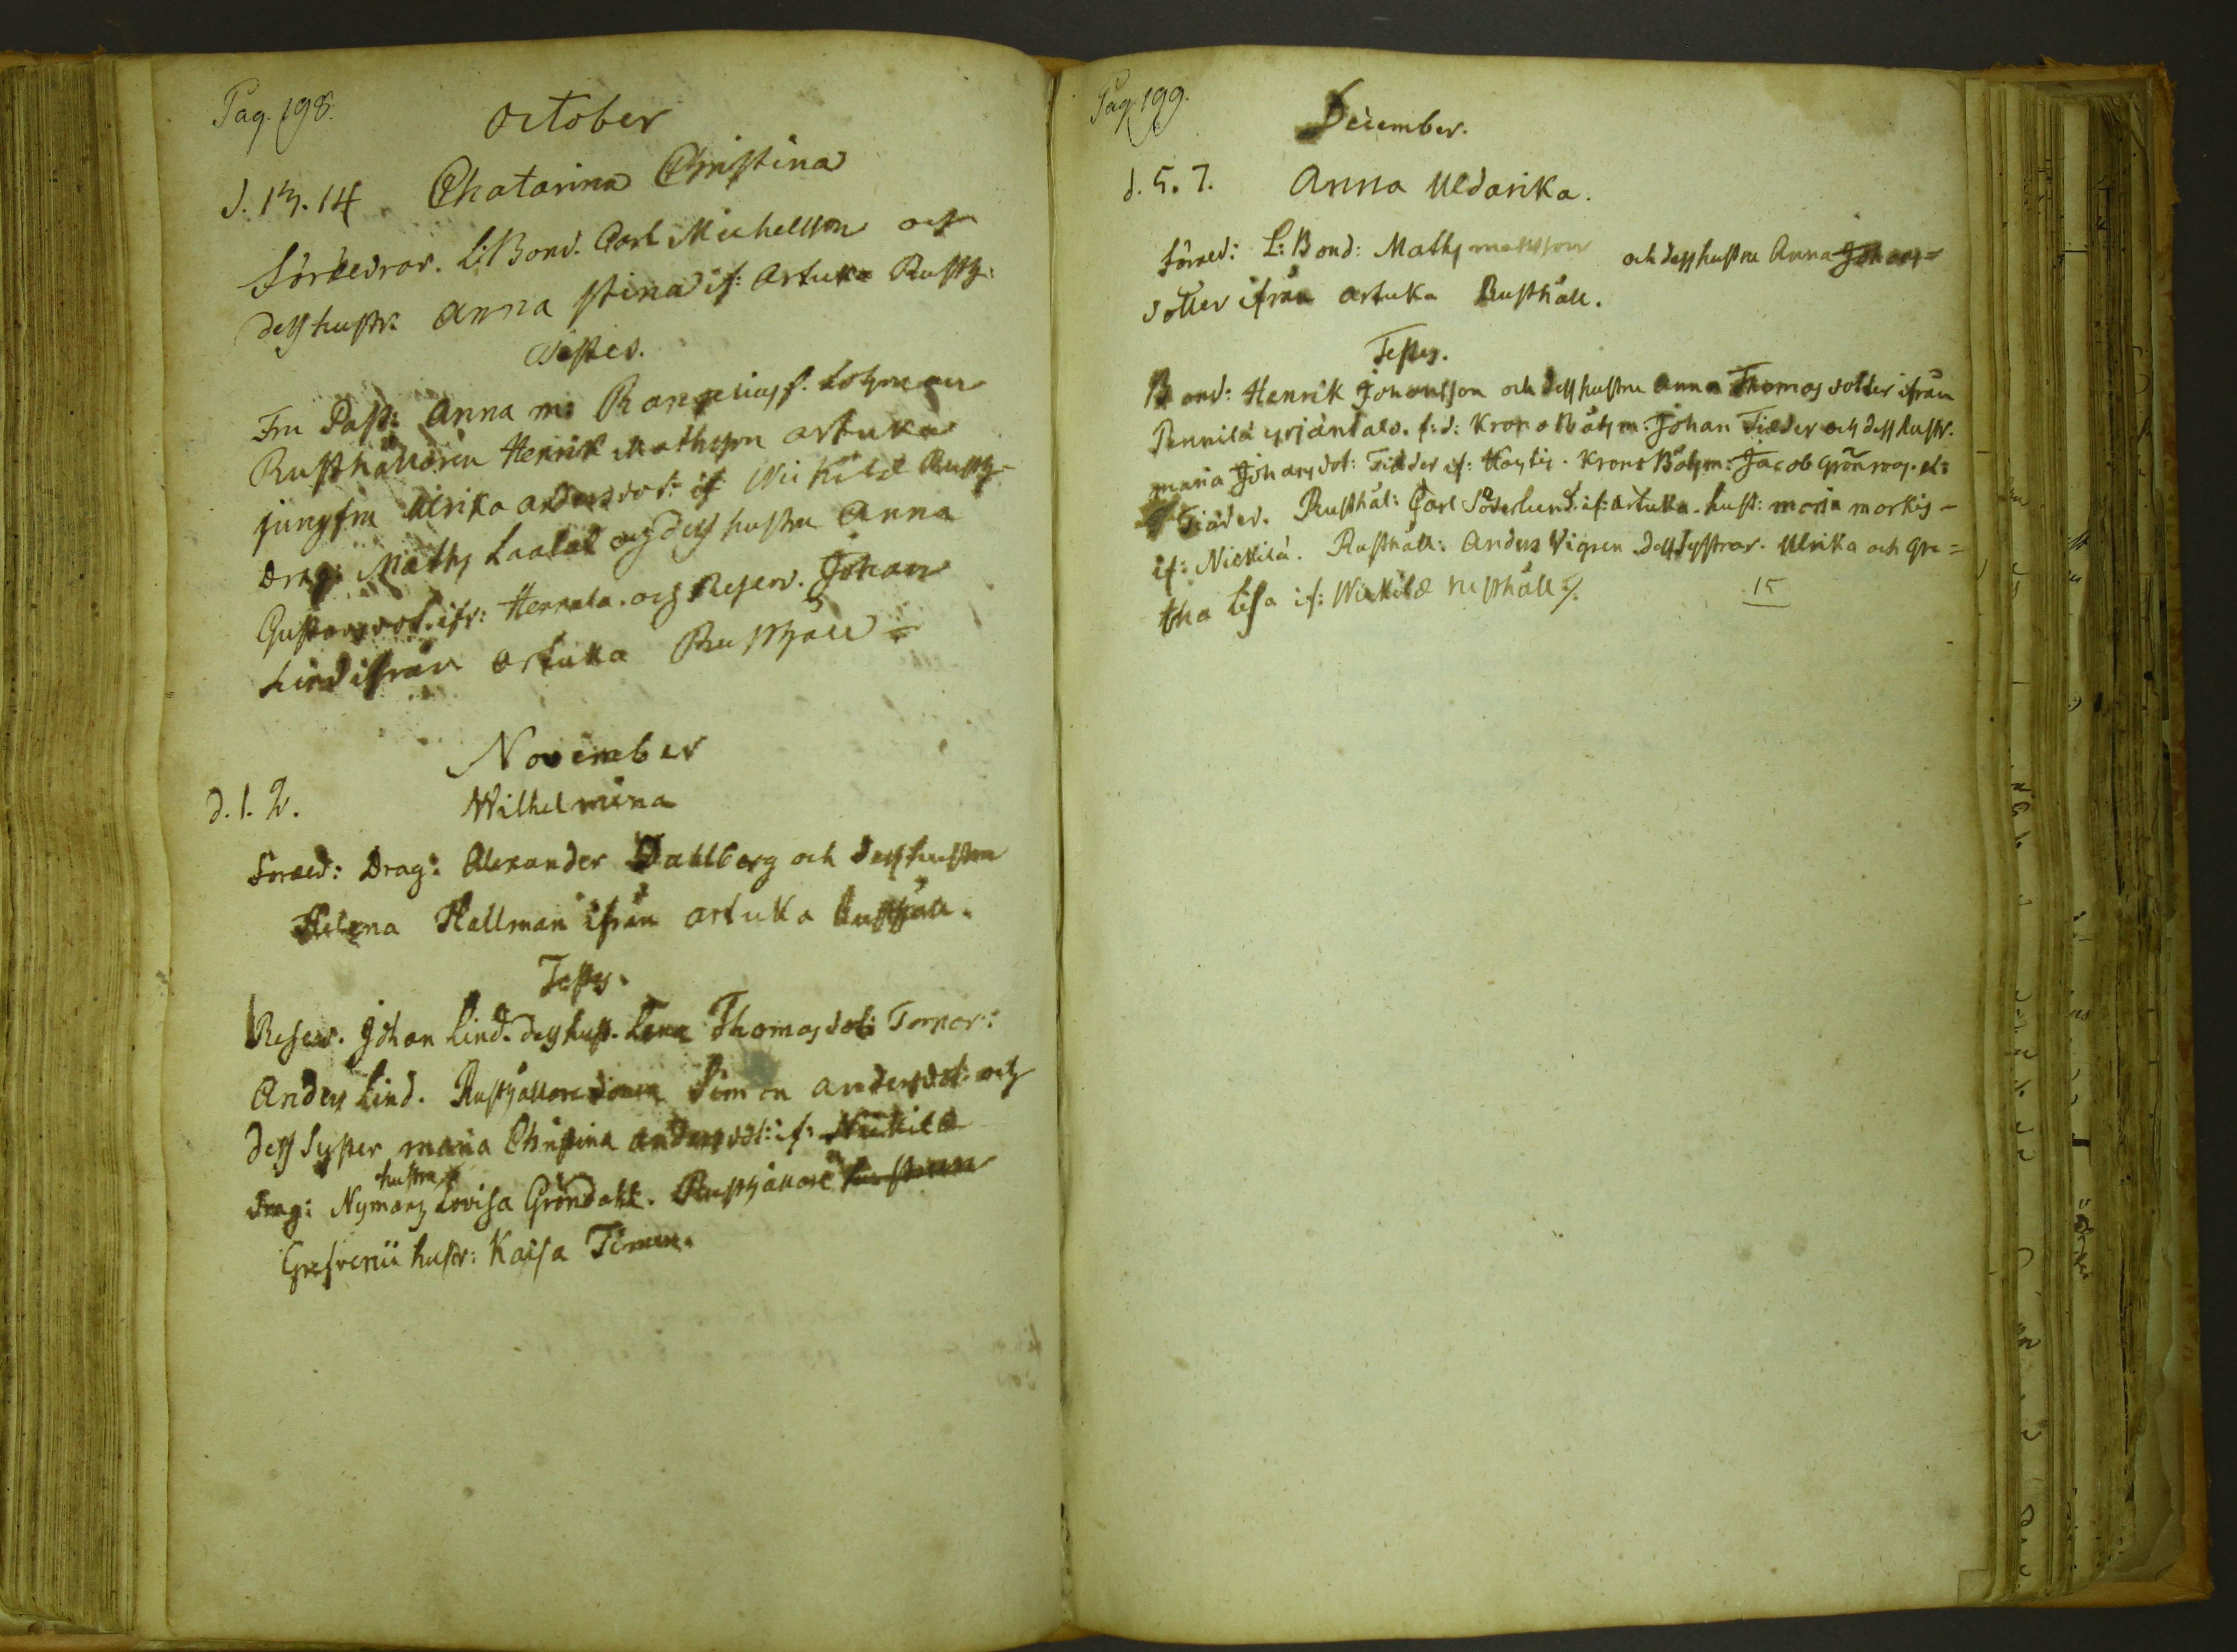 Pag. 198.
October
d. 13. 14 Chatarina Christina
Föräldrar. L: Bond. Carl Michelsson och
dess hustr. Anna Stina if: Artuka Rusth:
Testes.
Fru Past: Anna m: f. Lohman
Rusthållaren Henrik Mathsson Artuka
jungfru Ulrika Andersdot: if: Nickilä Rusth-
Drag: Maths Laalat och dess hustru Anna
Gustavsdot. ifr: Hennala. och Reserv. Johan
Lind ifrån Artuka Rusthåll
November
d. 1. 2. Wilhelmina
Foräld: Drag: Alexander Dahlberg och dess hustru
Helena Hallman ifrån Artuka Rusthåll.
Testes.
Reserv. Johan Lind. dess hust. Lena Thomasdot: Torpar:
Anders Lind. Rusthållare Simon Andersdot: och
dess Syster maria Christina Andersdot: if: Nickilä
hustru
Drag: Nymans Lovisa Gröndahl. Rusthållare hustrun
hustr: Kaisa Timen.
Pag. 199.
December.
d. 5. 7. Anna Uldarika.
Föräld: L: Bond: Maths matsson och dess hustru Anna Johans=
dotter ifrån Artuka Rusthåll.
Testes.
Bond: Henrik Johansson och dess hustru Anna Thomasdotter ifrån
Pennilä f: d: Krono Båtsm: Johan Fiäder och dess hustr.
maria Johansdot: Fiäder if: Krono Båtsm: Jacob Grönroos. et:
Fiäder. Rusthål: Carl Söderlund. if: Artuka. hust: maria morkis-
if: Nickilä. Rusthåll: Anders Vigren. dess Systrar. Ulrika och Gre=
tha Lisa if: Nickilä rusthåll ./.
15